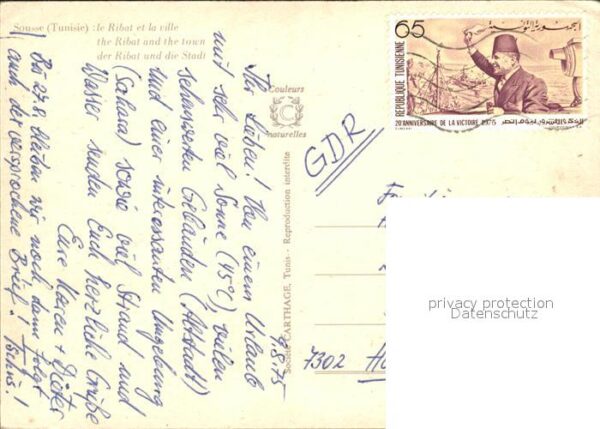 Sousse (Tunisie) : le Ribat et la ville
the Ribat and the town
der Ribat und die Stadt
Couleurs
C
naturelles
65
REPUBLIQUE TUNISIENNE
الجمهورية التونسية
20e ANNIVERSAIRE DE LA VICTOIRE 1975
GDR
Société CARTHAGE, Tunis - Reproduction interdite
7.8.75
Ihr Lieben! Von einem Urlaub
mit sehr viel Sonne (45°C), vielen
sehenswerten Gebäuden (Altstadt)
und einer interessanten Umgebung
(Sahara) sowie viel Strand und
Wasser senden Euch herzliche Grüße
Eure Karen + Dieter
Bis 27.8. bleiben wir noch, dann folgt
auch der versprochene Brief. Tschüs!
7302
privacy protection
Datenschutz